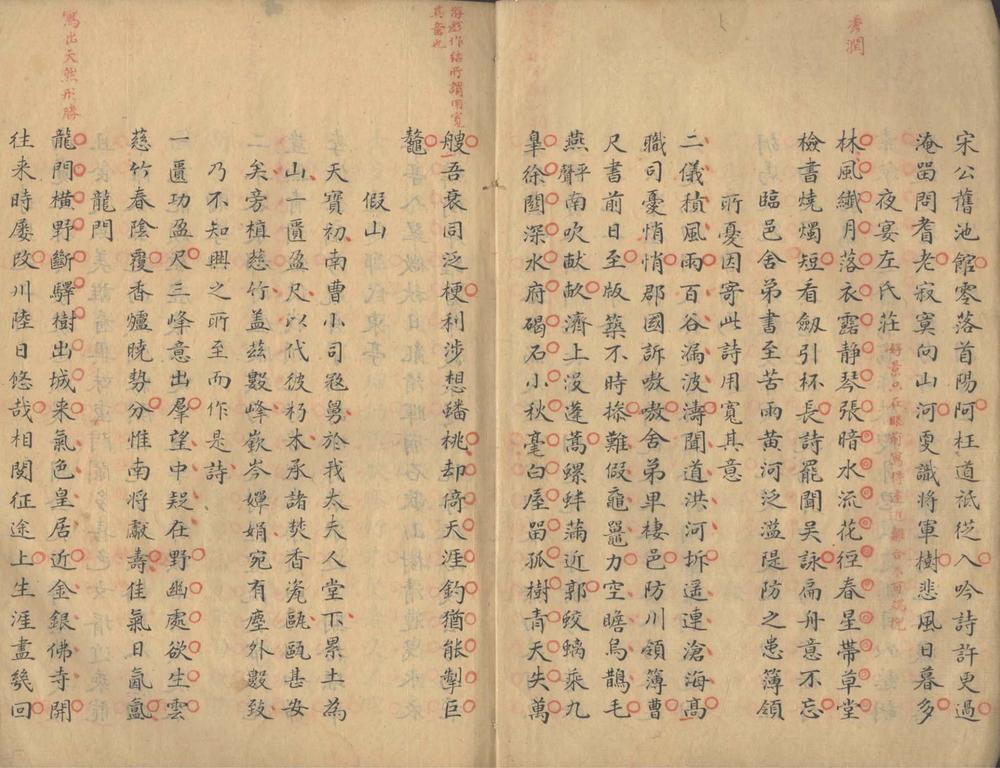 秀潤
宋公舊池館零落首陽阿枉道祇從入吟詩許更過
淹留問耆老寂寞向山河更識將軍樹悲風日暮多
夜宴左氏莊
林風纖月落衣露靜琴張暗水流花徑春星帶草堂
檢書燒燭短看劍引杯長詩罷聞吳詠扁舟意不忘
臨邑舍弟書至苦雨黃河泛溢隄防之患簿領
所憂因寄此詩用寬其意
二儀積風雨百谷漏波濤聞道洪河坼遥連滄海髙
職司憂悄悄郡國訴嗷嗷舍弟卑棲邑防川領簿曹
尺書前日至版築不時操難假黿鼉力空瞻烏鵲毛
燕平聲南吹畎畝濟上沒蓬蒿螺蚌滿近郭蛟螭乘九
臯徐關深水府碣石小秋毫白屋留孤樹青天失萬
游戲作結所謂用寬
其意也
艘吾衰同泛梗利涉想蟠桃却倚天涯釣猶能掣巨
鼇
假山
天寶初南曹小司寇舅於我太夫人堂下累土為
山一匱盈尺以代彼朽木承諸焚香瓷甌甌甚安
二矣旁植慈竹盖茲數峰嶔岑嬋娟宛有塵外數致
乃不知興之所至而作是詩
一匱功盈尺三峰意出羣望中疑在野幽處欲生雲
慈竹春陰覆香爐曉勢分惟南將獻壽佳氣日氤氳
龍門
寫出天然形勝
龍門橫野斷驛樹出城来氣色皇居近金銀佛寺開
往来時屡改川陸日悠哉相閱征途上生涯盡幾回